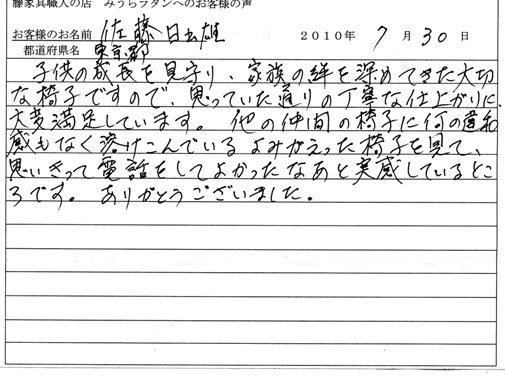 藤家具職人の店　みうらラタンへのお客様の声
お客様のお名前 佐藤日出雄 2010年 7月 30日
都道府県名 東京都
子供の成長を見守り、家族の絆を深めてきた大切
な椅子ですので、思っていた通りの丁寧な仕上がりに、
大変満足しています。他の仲間の椅子に何の違和
感もなく溶けこんでいるよみがえった椅子を見て、
思いきって電話をしてよかったなあと実感しているとこ
ろです。ありがとうございました。